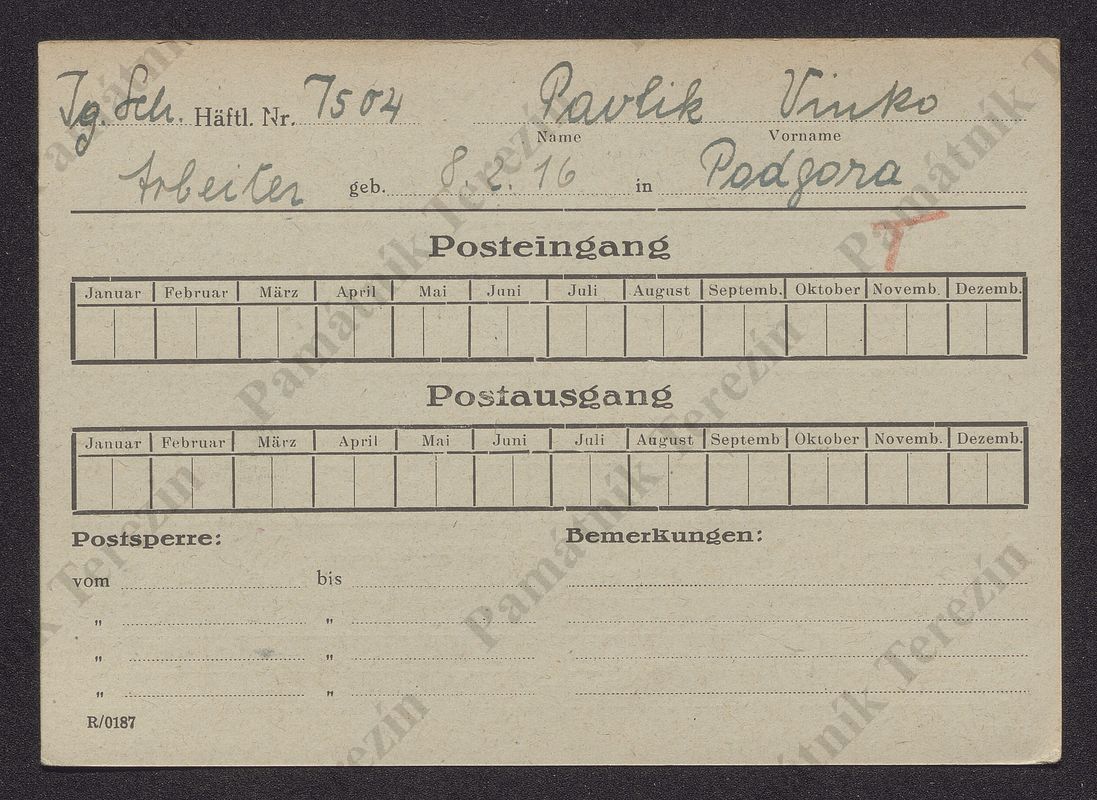 Jg. Sch. Häftl. Nr. 7504 Pavlik Vinko
Name Vorname
Arbeiter geb. 8 2. 16 in Podgora
Posteingang
Januar Februar März April Mai Juni Juli August Septemb. Oktober Novemb. Dezemb.
Postausgang
Januar Februar März April Mai Juni Juli August Septemb Oktober Novemb. Dezemb.
Postsperre: Bemerkungen:
vom bis
" "
" "
" "
R/0187
Památník Terezín